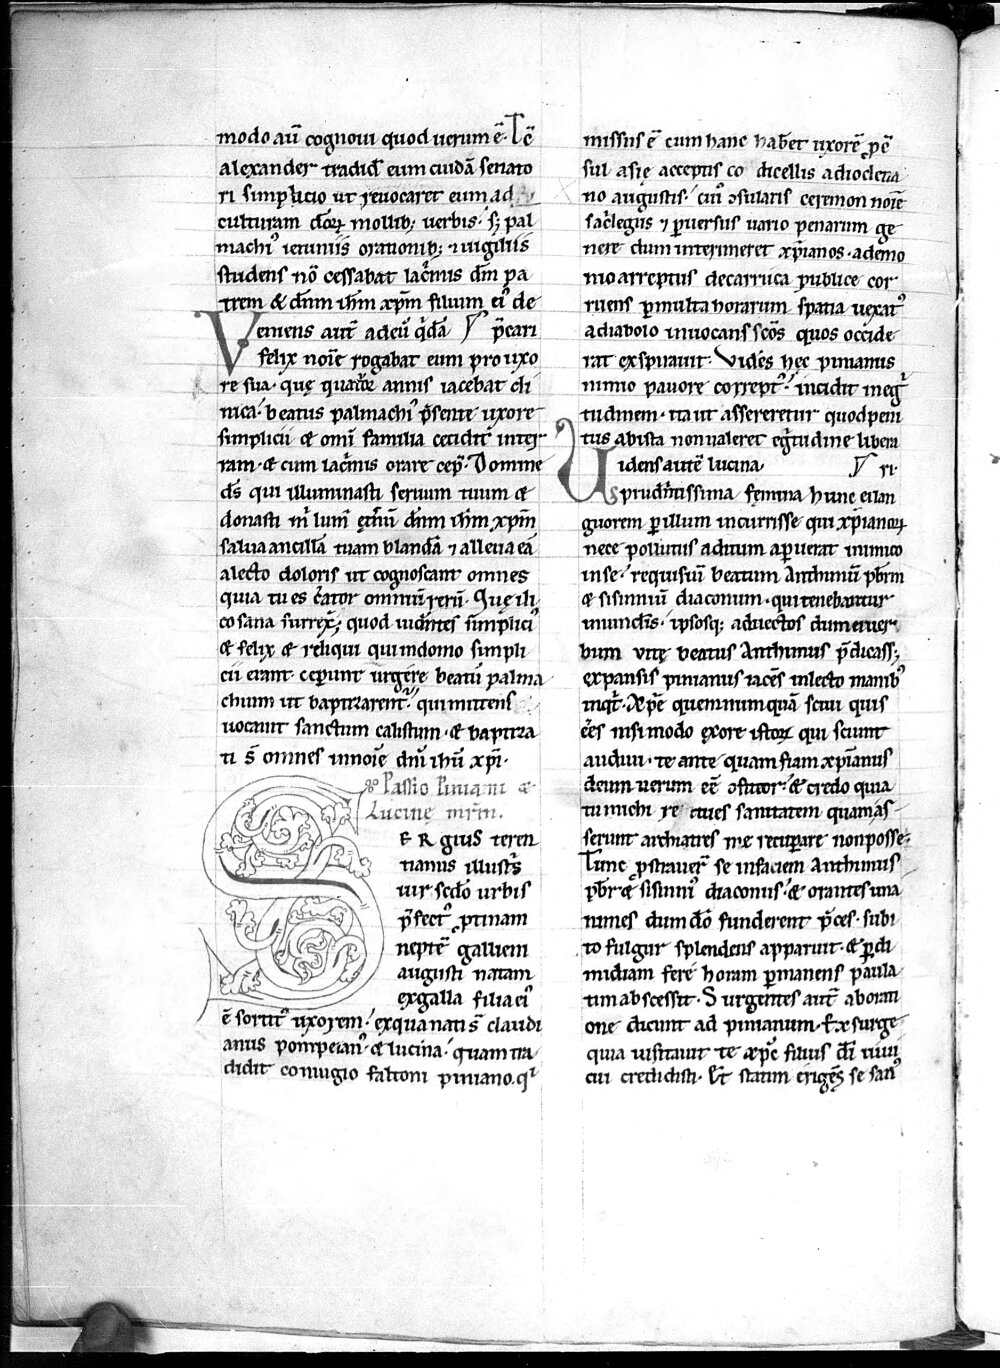 modo aū cognoui quod uerum ē. Tc̄
alexander tradid̄ eum cuidā senato
ri simplicio ut reuocaret eum ad
culturam deoꝝ mollib; uerbis. s; pal
machi᷒ ieiuniis orationib; ⁊ uigiliis
studens nō cessabat lac̄mis dm̄ pa
trem & dn̄m ihm̄ xpm̄ filium ei᷒ de
p̄cari
Veniens aut̄ ad eū q̇dā
felix noīe rogabat eum pro uxo
re sua. quę quatuor annis iacebat cli
nica. beatus palmachi᷒ p̄sente uxore
simplicii & omī familia cecidit inter
ram. & cum lac̄mis orare cep̄. Domine
d̄s qui illuminasti seruum tuum &
donasti m̄ lum̄ et̄nū dn̄m ihm̄ xpm̄
salua ancillā tuam blandā ⁊ alleua eā
a lecto doloris ut cognoscant omnes
quia tu es c̄ator omniū rerū. Quę ili
co sana surrex̄; quod uidentes simplici᷒
& felix & reliqui qui in domo simpli
cii erant. ceperunt urgere beatū palma
chium ut baptizarent᷒. qui mittens
uocauit sanctum calistum. & baptiza
ti s̄ omnes in noīe dn̄i ihū xpi.
Passio Piniani &
Lucinę mr̄m.
SERgius teren
tianus illustris
uir sedō urbis
p̄fect᷒ sortitam
neptē gallieni
augusti natam
ex galla filia ei᷒
ē sortit᷒ uxorem. ex qua nati s̄ claudi
anus pompeian᷒. & lucina. quam tra
didit coniugio faltoni piniano. q̇
missus ē cum hanc hab̄et uxorē ꝓcō
sul asię acceptis co dicellis a dioclecia
no augustis. cui᷒ ↄsularis ceremon noīe
sac̄legus ⁊ ꝑuersus uario penarum ge
nere dum interimeret xp̄ianos. a demo
nio arreptus de carruca publice cor
ruens ꝑ multa horarum spatia uexat᷒
a diabolo inuocans sc̄os quos occide
rat exspirauit. Vidēs hęc pinianus
nimio pauore corrept᷒. incidit in eg̓
tudinem. ita ut assereretur quod peni
tus ab ista non ualeret eg̓tudine libera
ri.
Uidens autē lucina
prudn̄tissima femina hunc ei lan
guorem ꝑ illum incurrisse qui xp̄ianoꝝ
nece pollutus aditum aperuerat inimico
in se. requisiuī beatum Anthimū pb̄rm
& sisinniū diaconum. qui tenebantur
in uinclis. ipsosq; aduectos dum e uer
bum uitę beatus Anthimus p̄dicass;
expansis pinianus iacēs in lecto manib᷒
inqt̄. Xp̄e quem numquā sciui quis
ēēs nisi modo ex ore istoꝝ qui sciunt
audiui. te ante quam fiam xp̄ianus
deum uerum eē ↄfiteor. & credo quia
tu michi re ddes sanitatem quam as
serunt archiatres me recuperare non posse.
Tunc ꝓstrauer̄ se in faciem Anthimus
pb̄r & sisinni᷒ diaconus. & orantes una
nimes dum dō funderent p̄ces. subi
to fulgur splendens apparuit. & ꝑ di
midiam ferē horam ꝑmanens paula
tim abscessit. Surgentes aut̄ ab orati
one dicunt ad pinianum. Exsurge
quia uisitauit te xp̄c filius dī uiui
cui credidisti. Et statim erigēs se san᷒